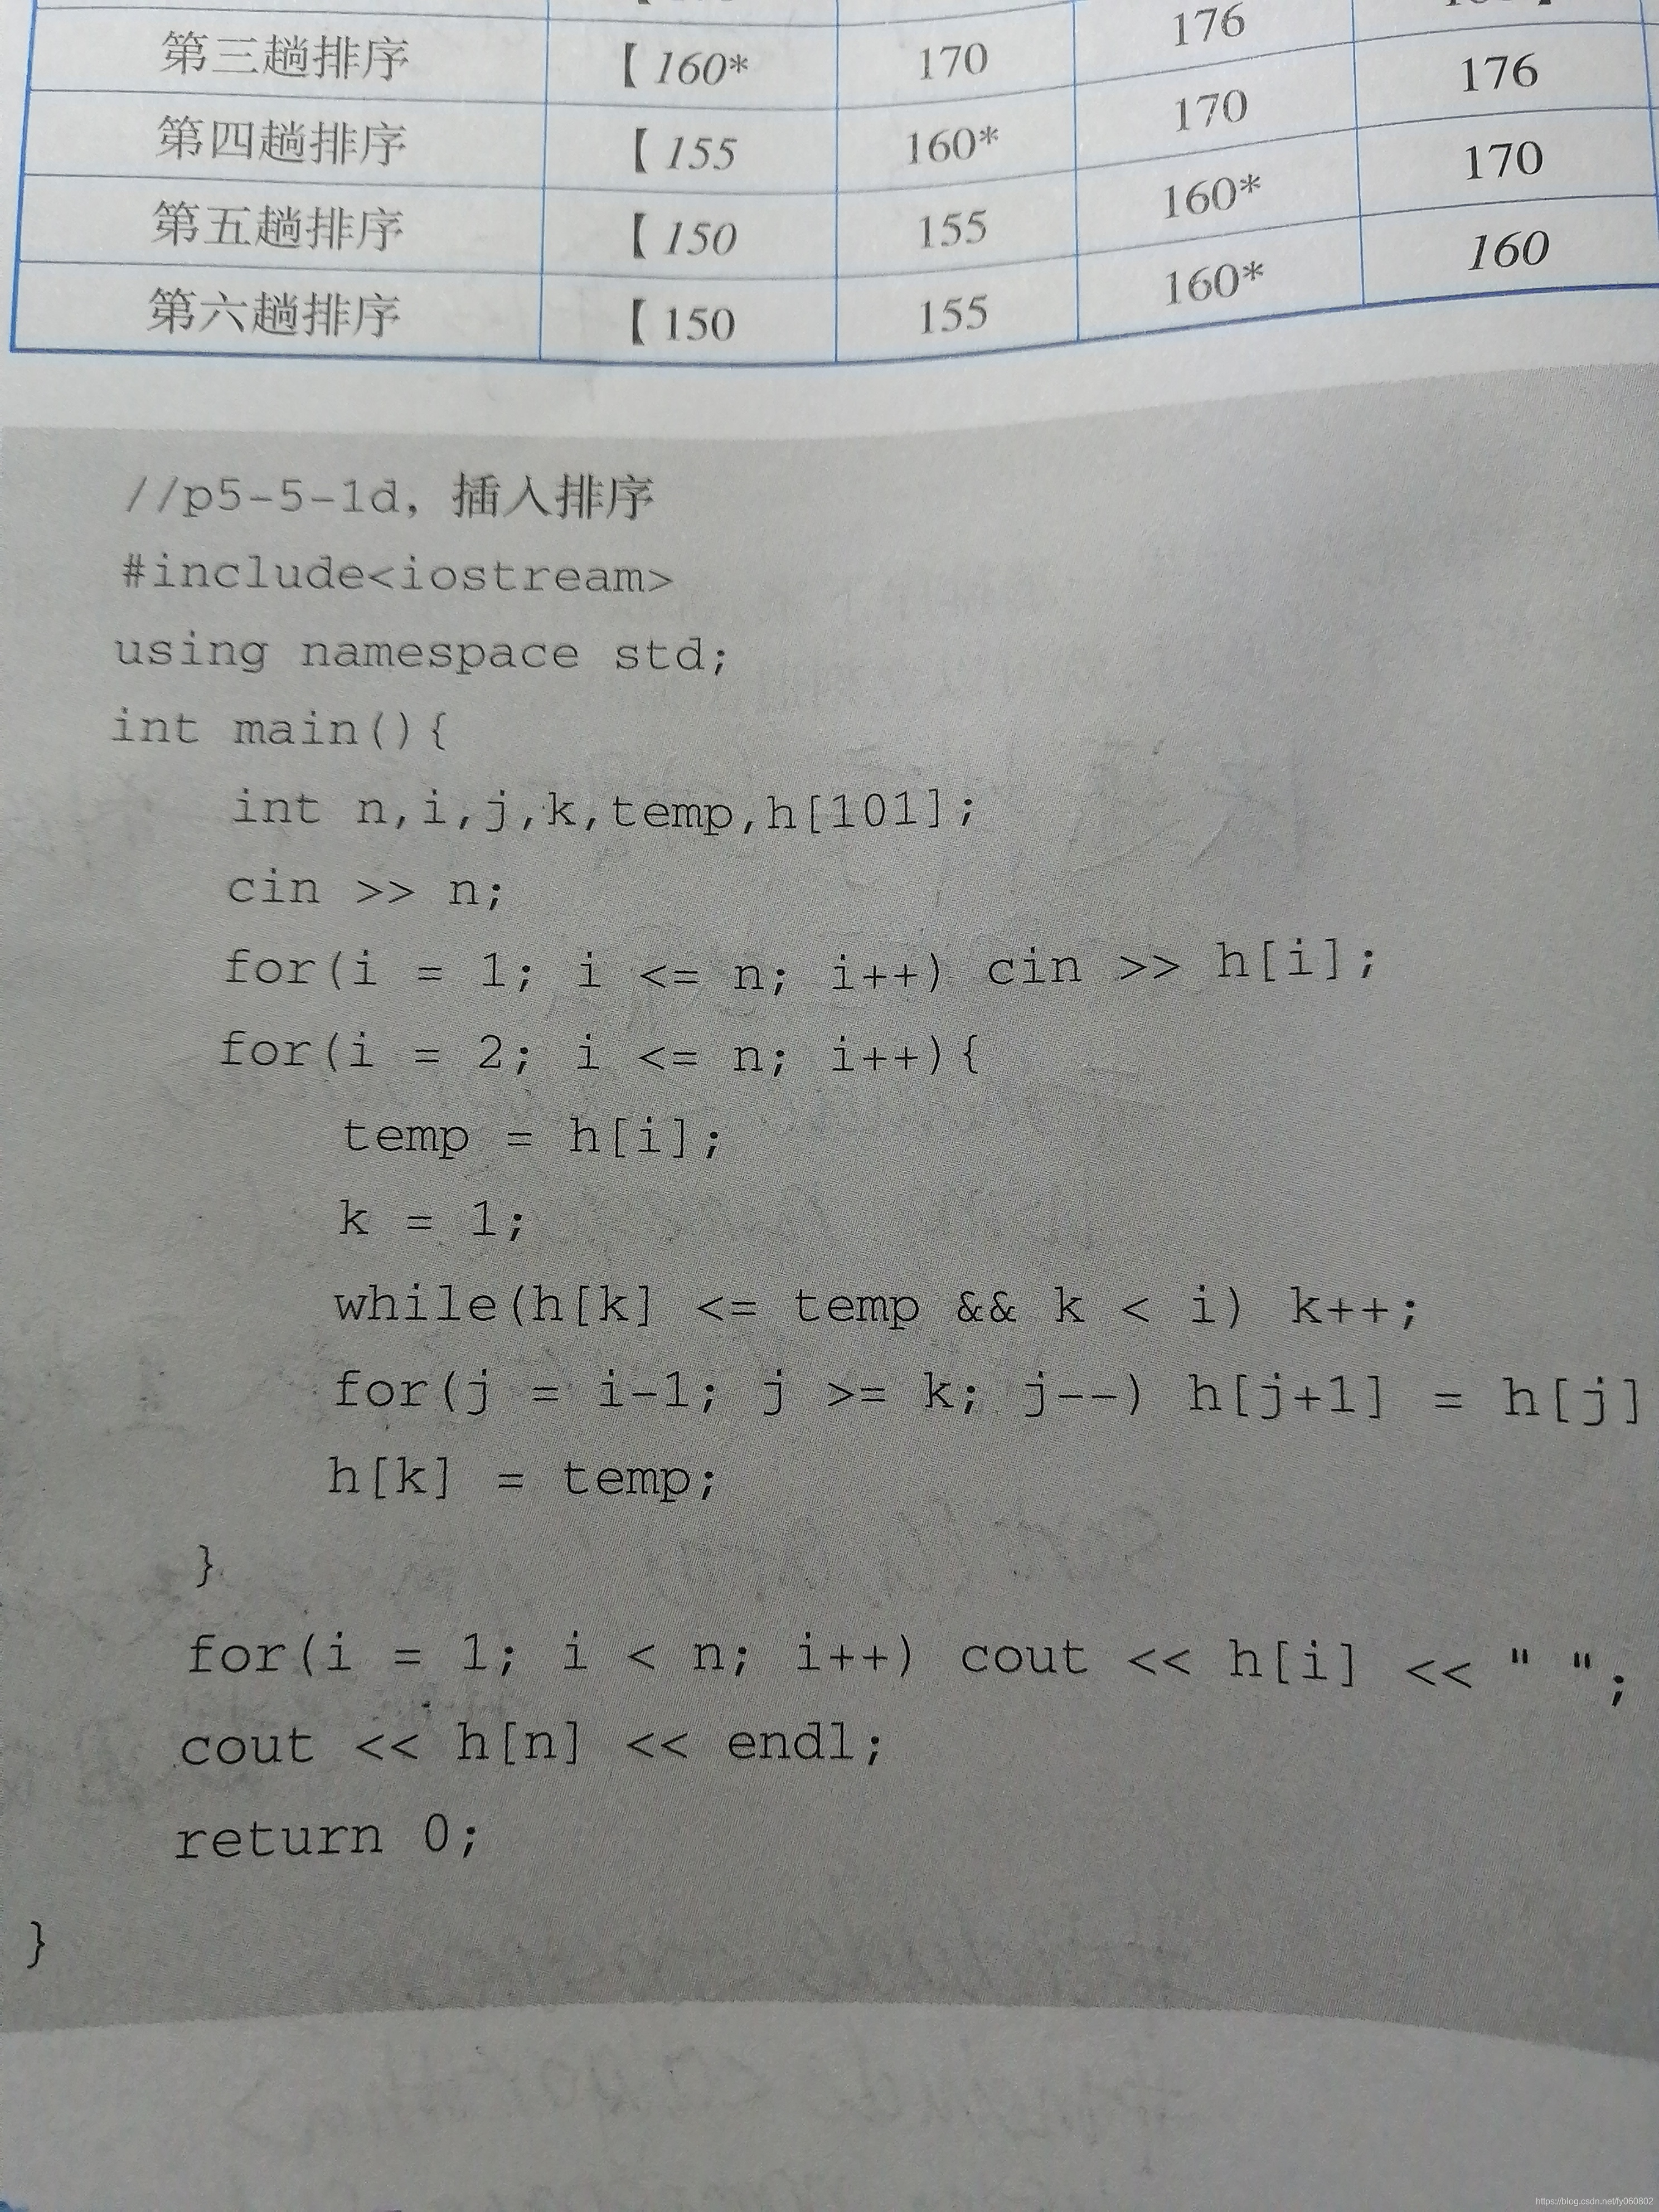 第三趟排序 【 160* 170 176
第四趟排序 【 155 160* 170 176
第五趟排序 【 150 155 160* 170
第六趟排序 【 150 155 160* 160
//p5-5-1d, 插入排序
#include<iostream>
using namespace std;
int main(){
int n,i,j,k,temp,h[101];
cin >> n;
for(i = 1; i <= n; i++) cin >> h[i];
for(i = 2; i <= n; i++){
temp = h[i];
k = 1;
while(h[k] <= temp && k < i) k++;
for(j = i-1; j >= k; j--) h[j+1] = h[j]
h[k] = temp;
}
for(i = 1; i < n; i++) cout << h[i] << " ";
cout << h[n] << endl;
return 0;
}
https://blog.csdn.net/fy060802